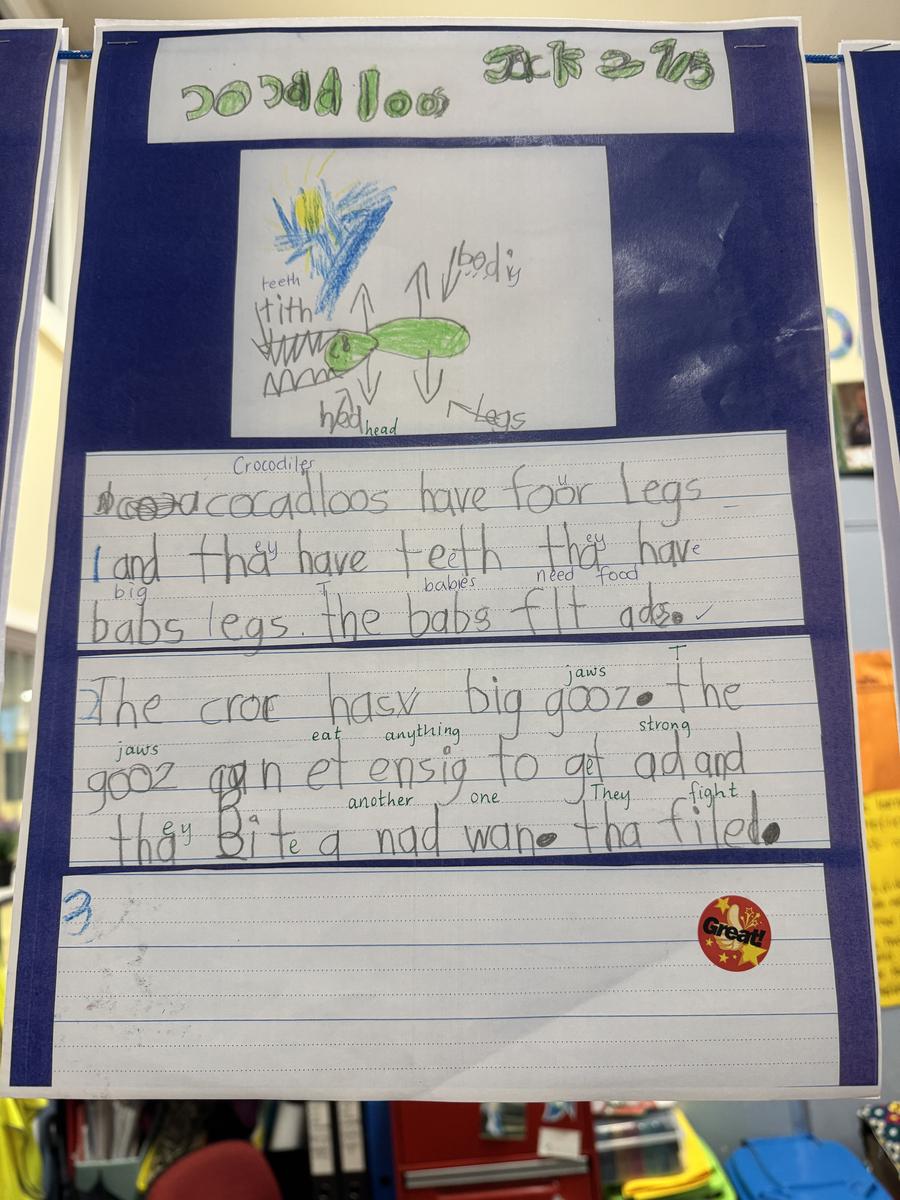 Jack
teeth
tith
bodiy
hed
head
Legs
Crocodiles
cocadloos have foour Legs
u
1 and thay have teeth thay have
ey e ey
big T babies need food
babs legs. the babs fIt ads. ✓
jaws T
2 The croc hasv big gooz. the
jaws eat anything strong
gooz can et ensig to get ad and
another one They fight
thay Bite a nad wan. tha filed.
ey
3
Great!